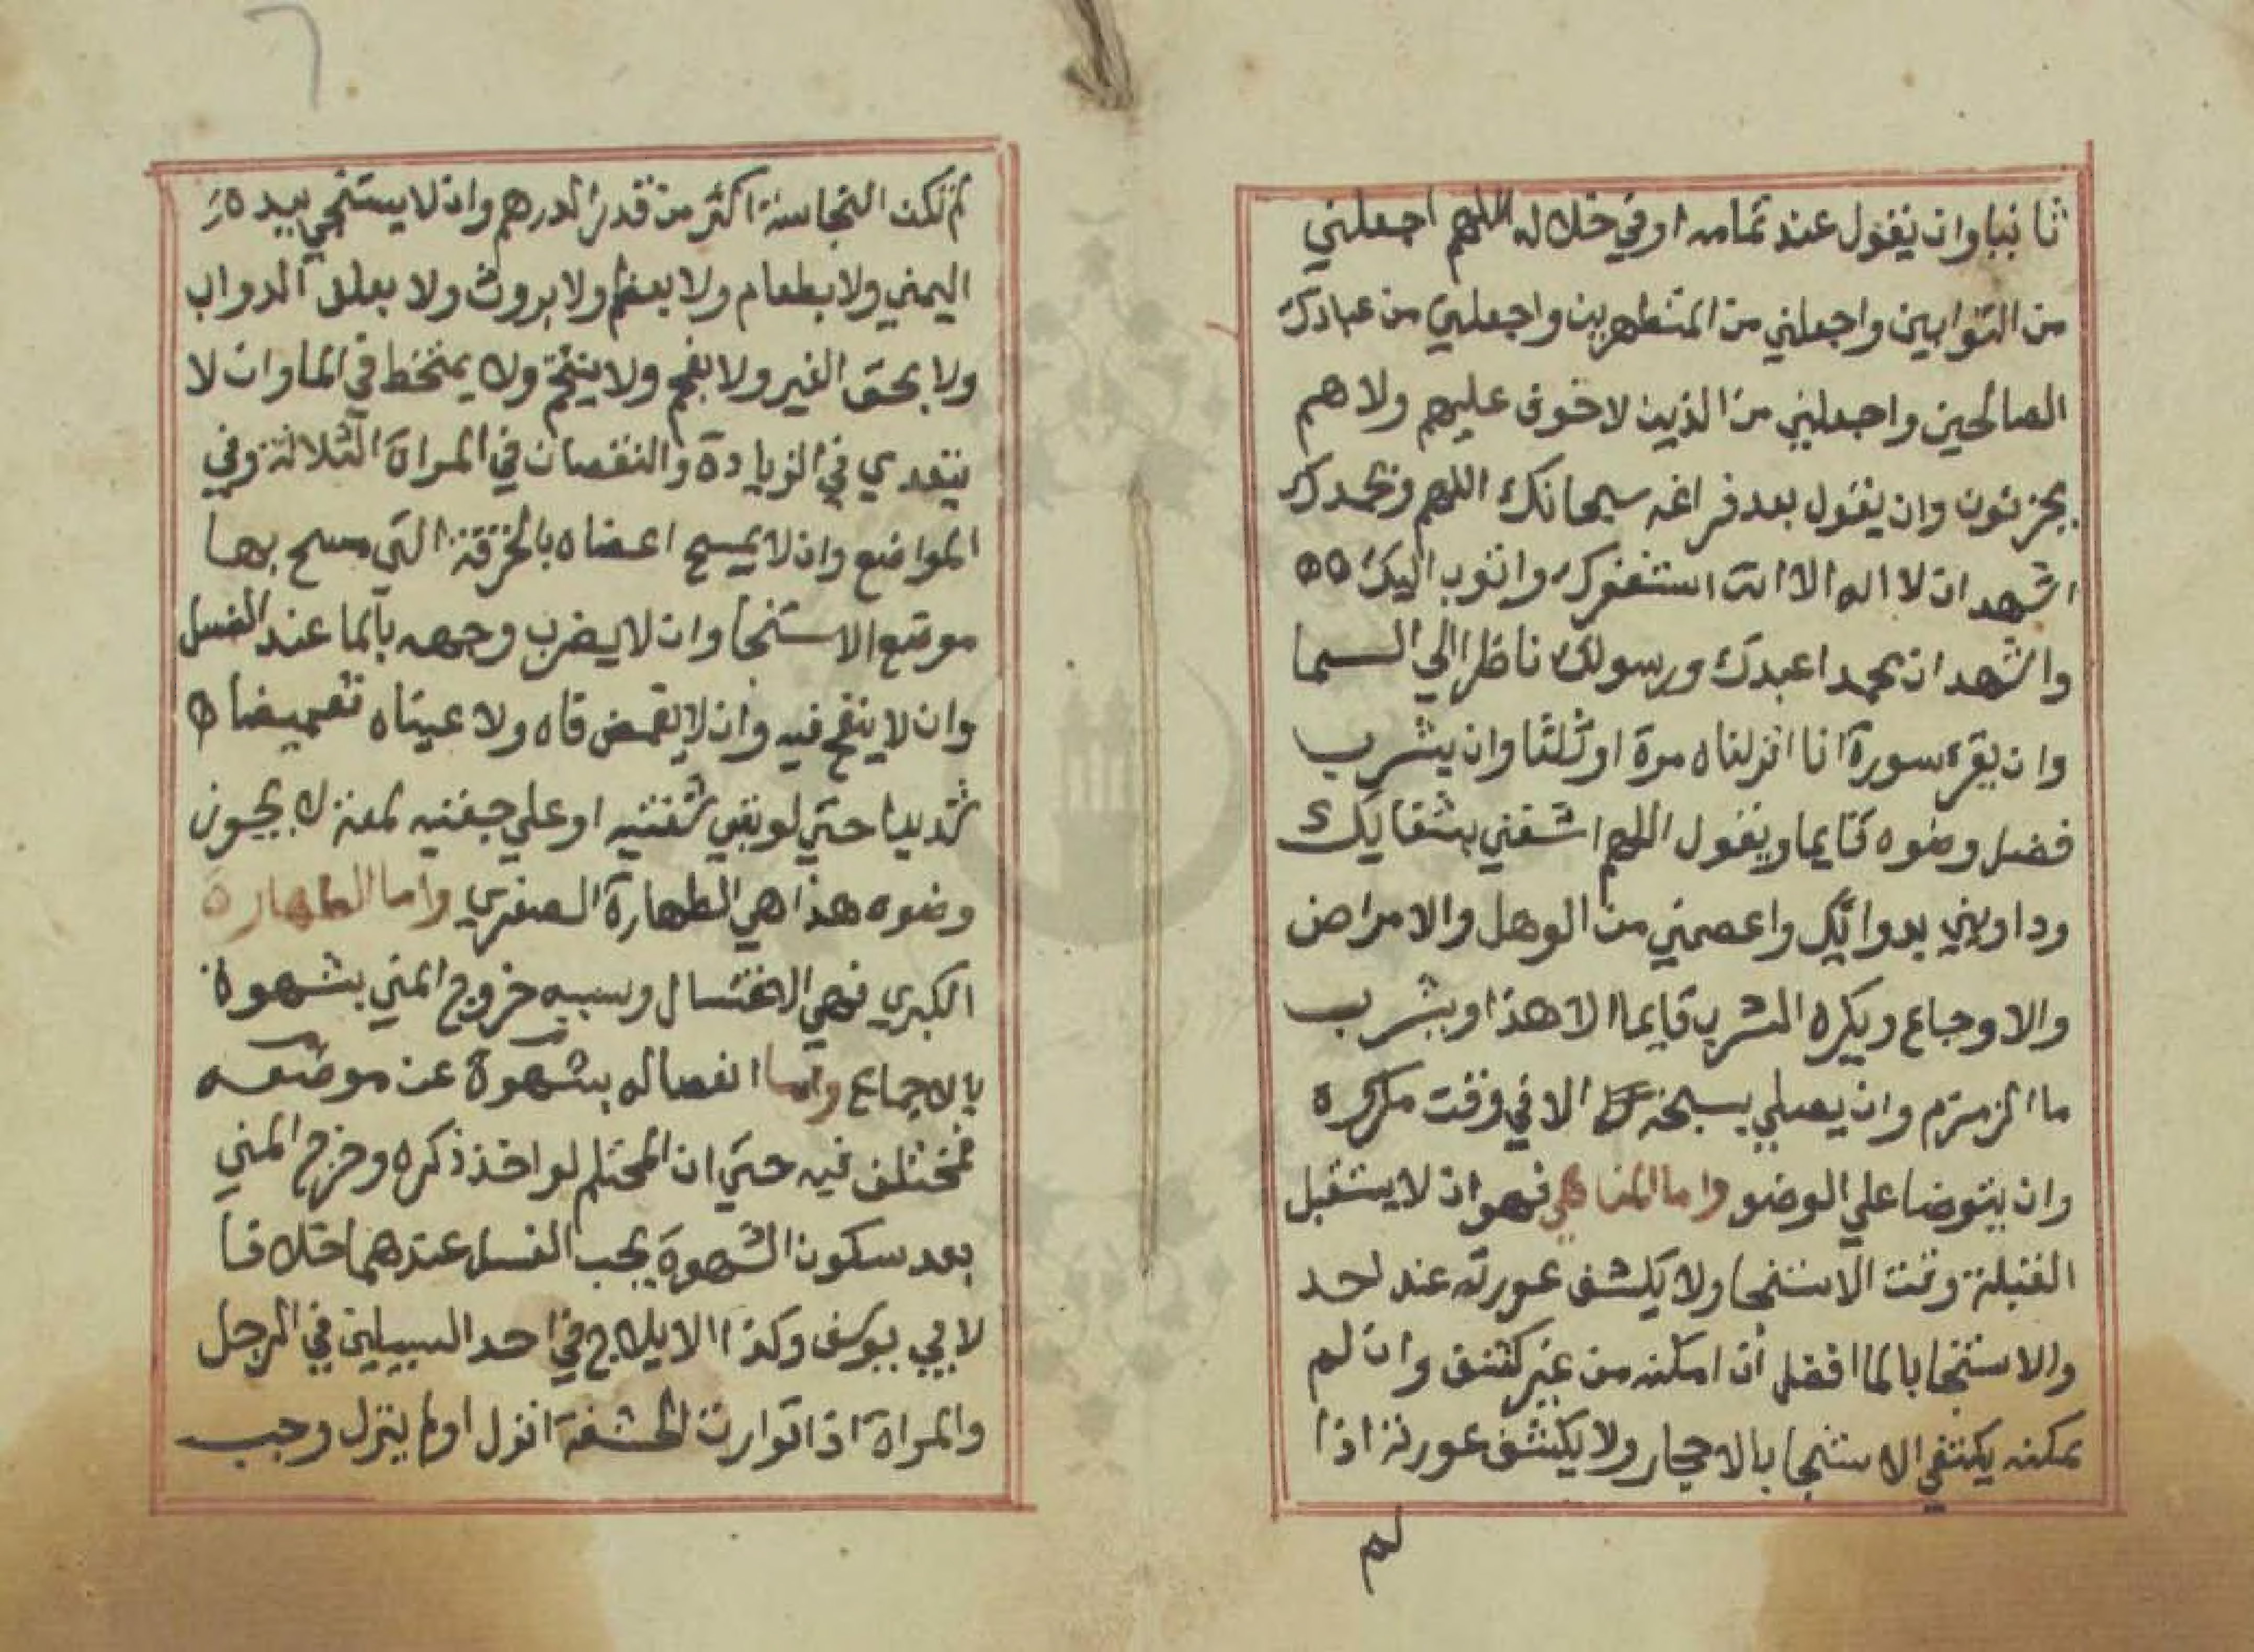 ثانيا وان يقول عند تمامه او في خلاله اللهم اجعلني
من التوابين واجعلني من المتطهرين واجعلني من عبادك
الصالحين واجعلني من الذين لا خوف عليهم ولا هم
يحزنون وان يقول بعد فراغه سبحانك اللهم وبحمدك
اشهد ان لا اله الا انت استغفرك واتوب اليك
واشهد ان محمدا عبدك ورسولك ناظرا الي السما
وان يقرء سورة انا انزلناه مرة او ثلثا وان يشرب
فضل وضوه قايما ويقول اللهم اشفني بشفايك
وداويني بدوائك واعصمني من الوهل والامراض
والاوجاع ويكره الشرب قايما الا هذا او يشرب
ما الزمزم وان يصلي بسبحة الا في وقت مكره
وان يتوضا علي الوضو واما المناهي فهو ان لا يستقبل
القبلة وقت الاستنجا ولا يكشف عورته عند احد
والاستنجا بالما افضل ان امكنه من غير كشف وان لم
يمكنه يكتفي الاستنجا بالاحجار ولا يكشف عورته اذا
لم
لم تكن النجاسة اكثر من قدر الدرهم وان لا يستنجي بيده
اليمني ولا بطعام ولا بعظم ولا بروث ولا بعلف الدواب
ولا بحق الغير ولا بفحم ولا يتنخم ولا يمتخط في الما وان لا
يتعدي في الزيادة والنقصان في المراة الثلاثة وفي
المواضع وان لا يمسح اعضاه بالخرقة التي مسح بها
موضع الاستنجا وان لا يضرب وجهه بالما عند الغسل
وان لا ينفخ فيه وان لا يغمض فاه ولا عيناه تغميضا
شديدا حتي لو بقي شفتيه او علي جفنيه لمعة لا يجوز
وضوه هذا هي الطهارة الصغري واما الطهارة
الكبري فهي الاغتسال وسببه خروج المني بشهوة
بالاجماع واما انفصاله بشهوة عن موضعه
فمختلف فيه حتي ان المحتلم لو اخذ ذكره وخرج المني
بعد سكون الشهوة يجب الغسل عندهما خلافا
لابي يوسف وكذا الايلاج في احد السبيلين في الرجل
والمراة اذا توارت الحشفة انزل او لم ينزل وجب